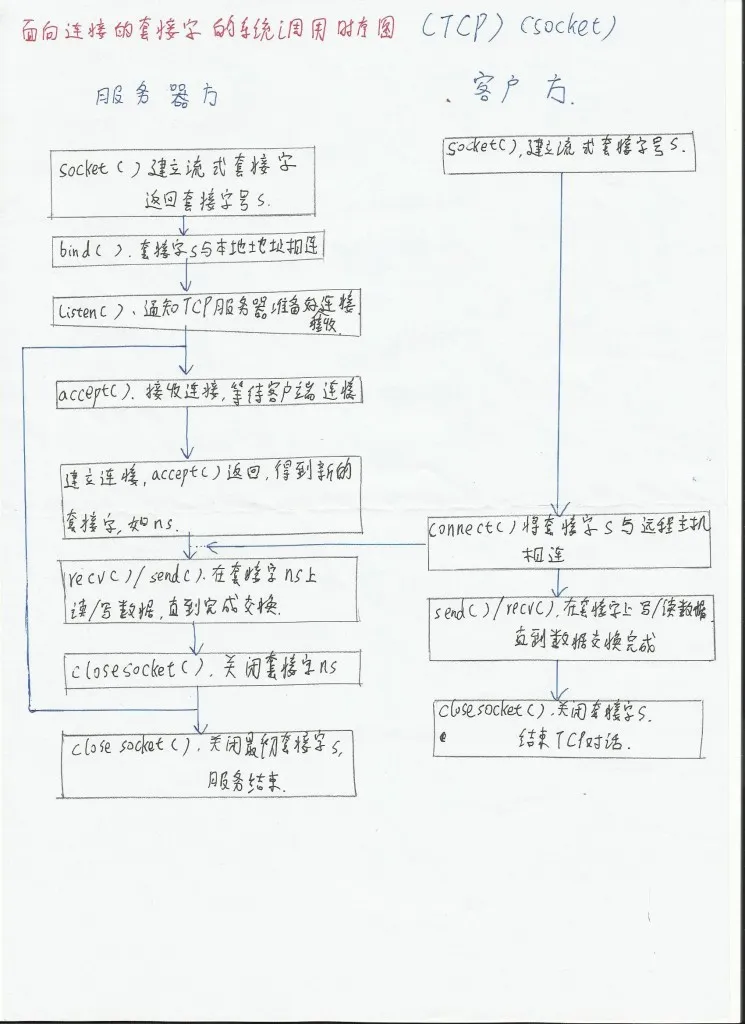 面向连接的套接字的系统调用时序图 (TCP) (socket)
服务器方
客户方.
socket()建立流式套接字
返回套接字号s.
bind().套接字s与本地地址相连
listen()、通知TCP服务器准备好连接.
接收
accept().接收连接,等待客户端连接
建立连接,accept()返回,得到新的
套接字,如ns.
recv()/send().在套接字ns上
读/写数据,直到完成交换.
closesocket().关闭套接字ns
closesocket().关闭最初套接字s,
服务结束.
socket(),建立流式套接字号s.
connect()将套接字s与远程主机
相连
send()/recv().在套接字上写/读数据,
直到数据交换完成
closesocket().关闭套接字s.
结束TCP对话.